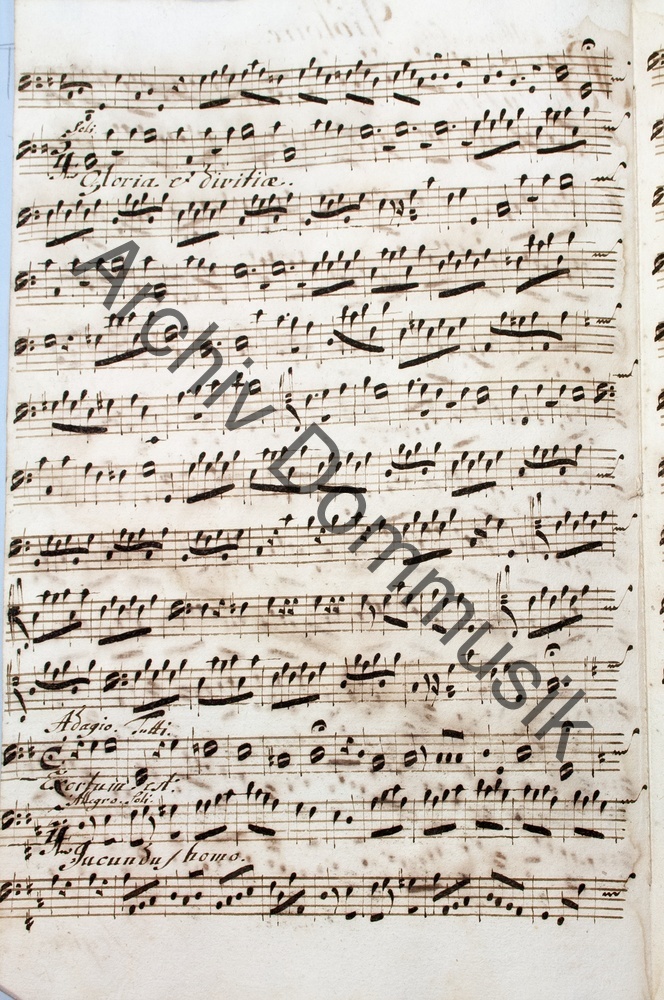 Soli.
Gloria et divitiæ.
Adagio. Tutti.
Exortum est.
Allegro. Soli.
Jucundus homo.
Archiv Dommusik